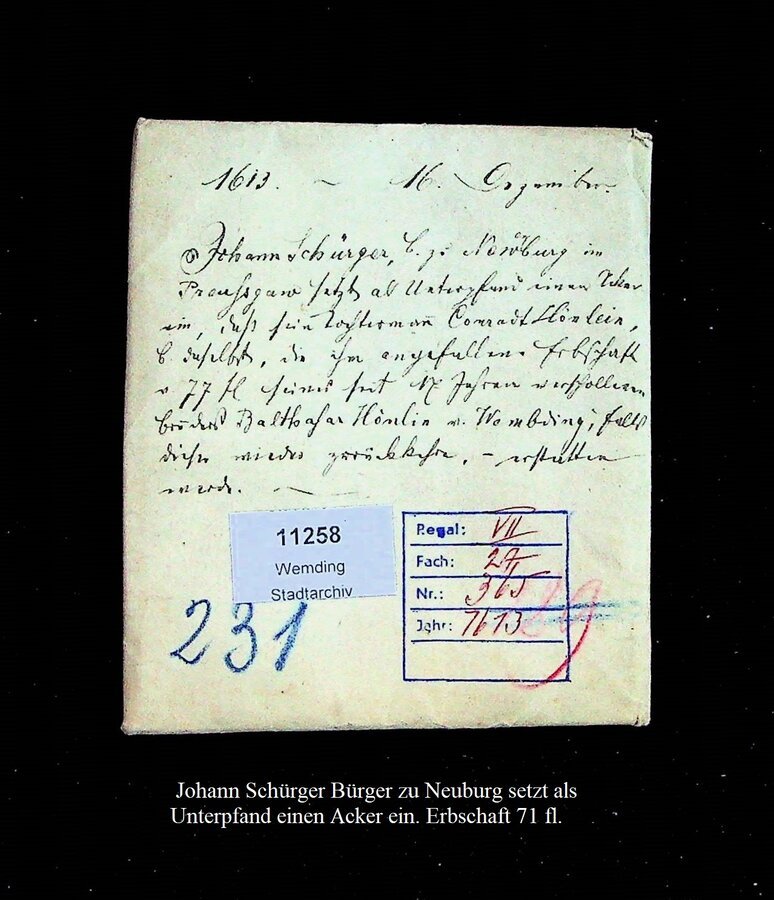 1613. – 16. Dezember.
Johann Schürger, b. zu Newburg im
setzt als Unterpfand einen Acker
ein, daß sein Tochterman Conradt Hönlein,
b. daselbst, die ihm angefallene Erbschaft
v 77 fl seines seit 17 Jahren verschollenen
Bruders Balthasar Hönlin v. Wembding, falls
dieser wieder zurückkehre, – erstatten
werde. –
11258
Wemding
Stadtarchiv
231
Regal: VII
Fach: 27
Nr.: 365
Jahr: 1613
Johann Schürger Bürger zu Neuburg setzt als
Unterpfand einen Acker ein. Erbschaft 71 fl.